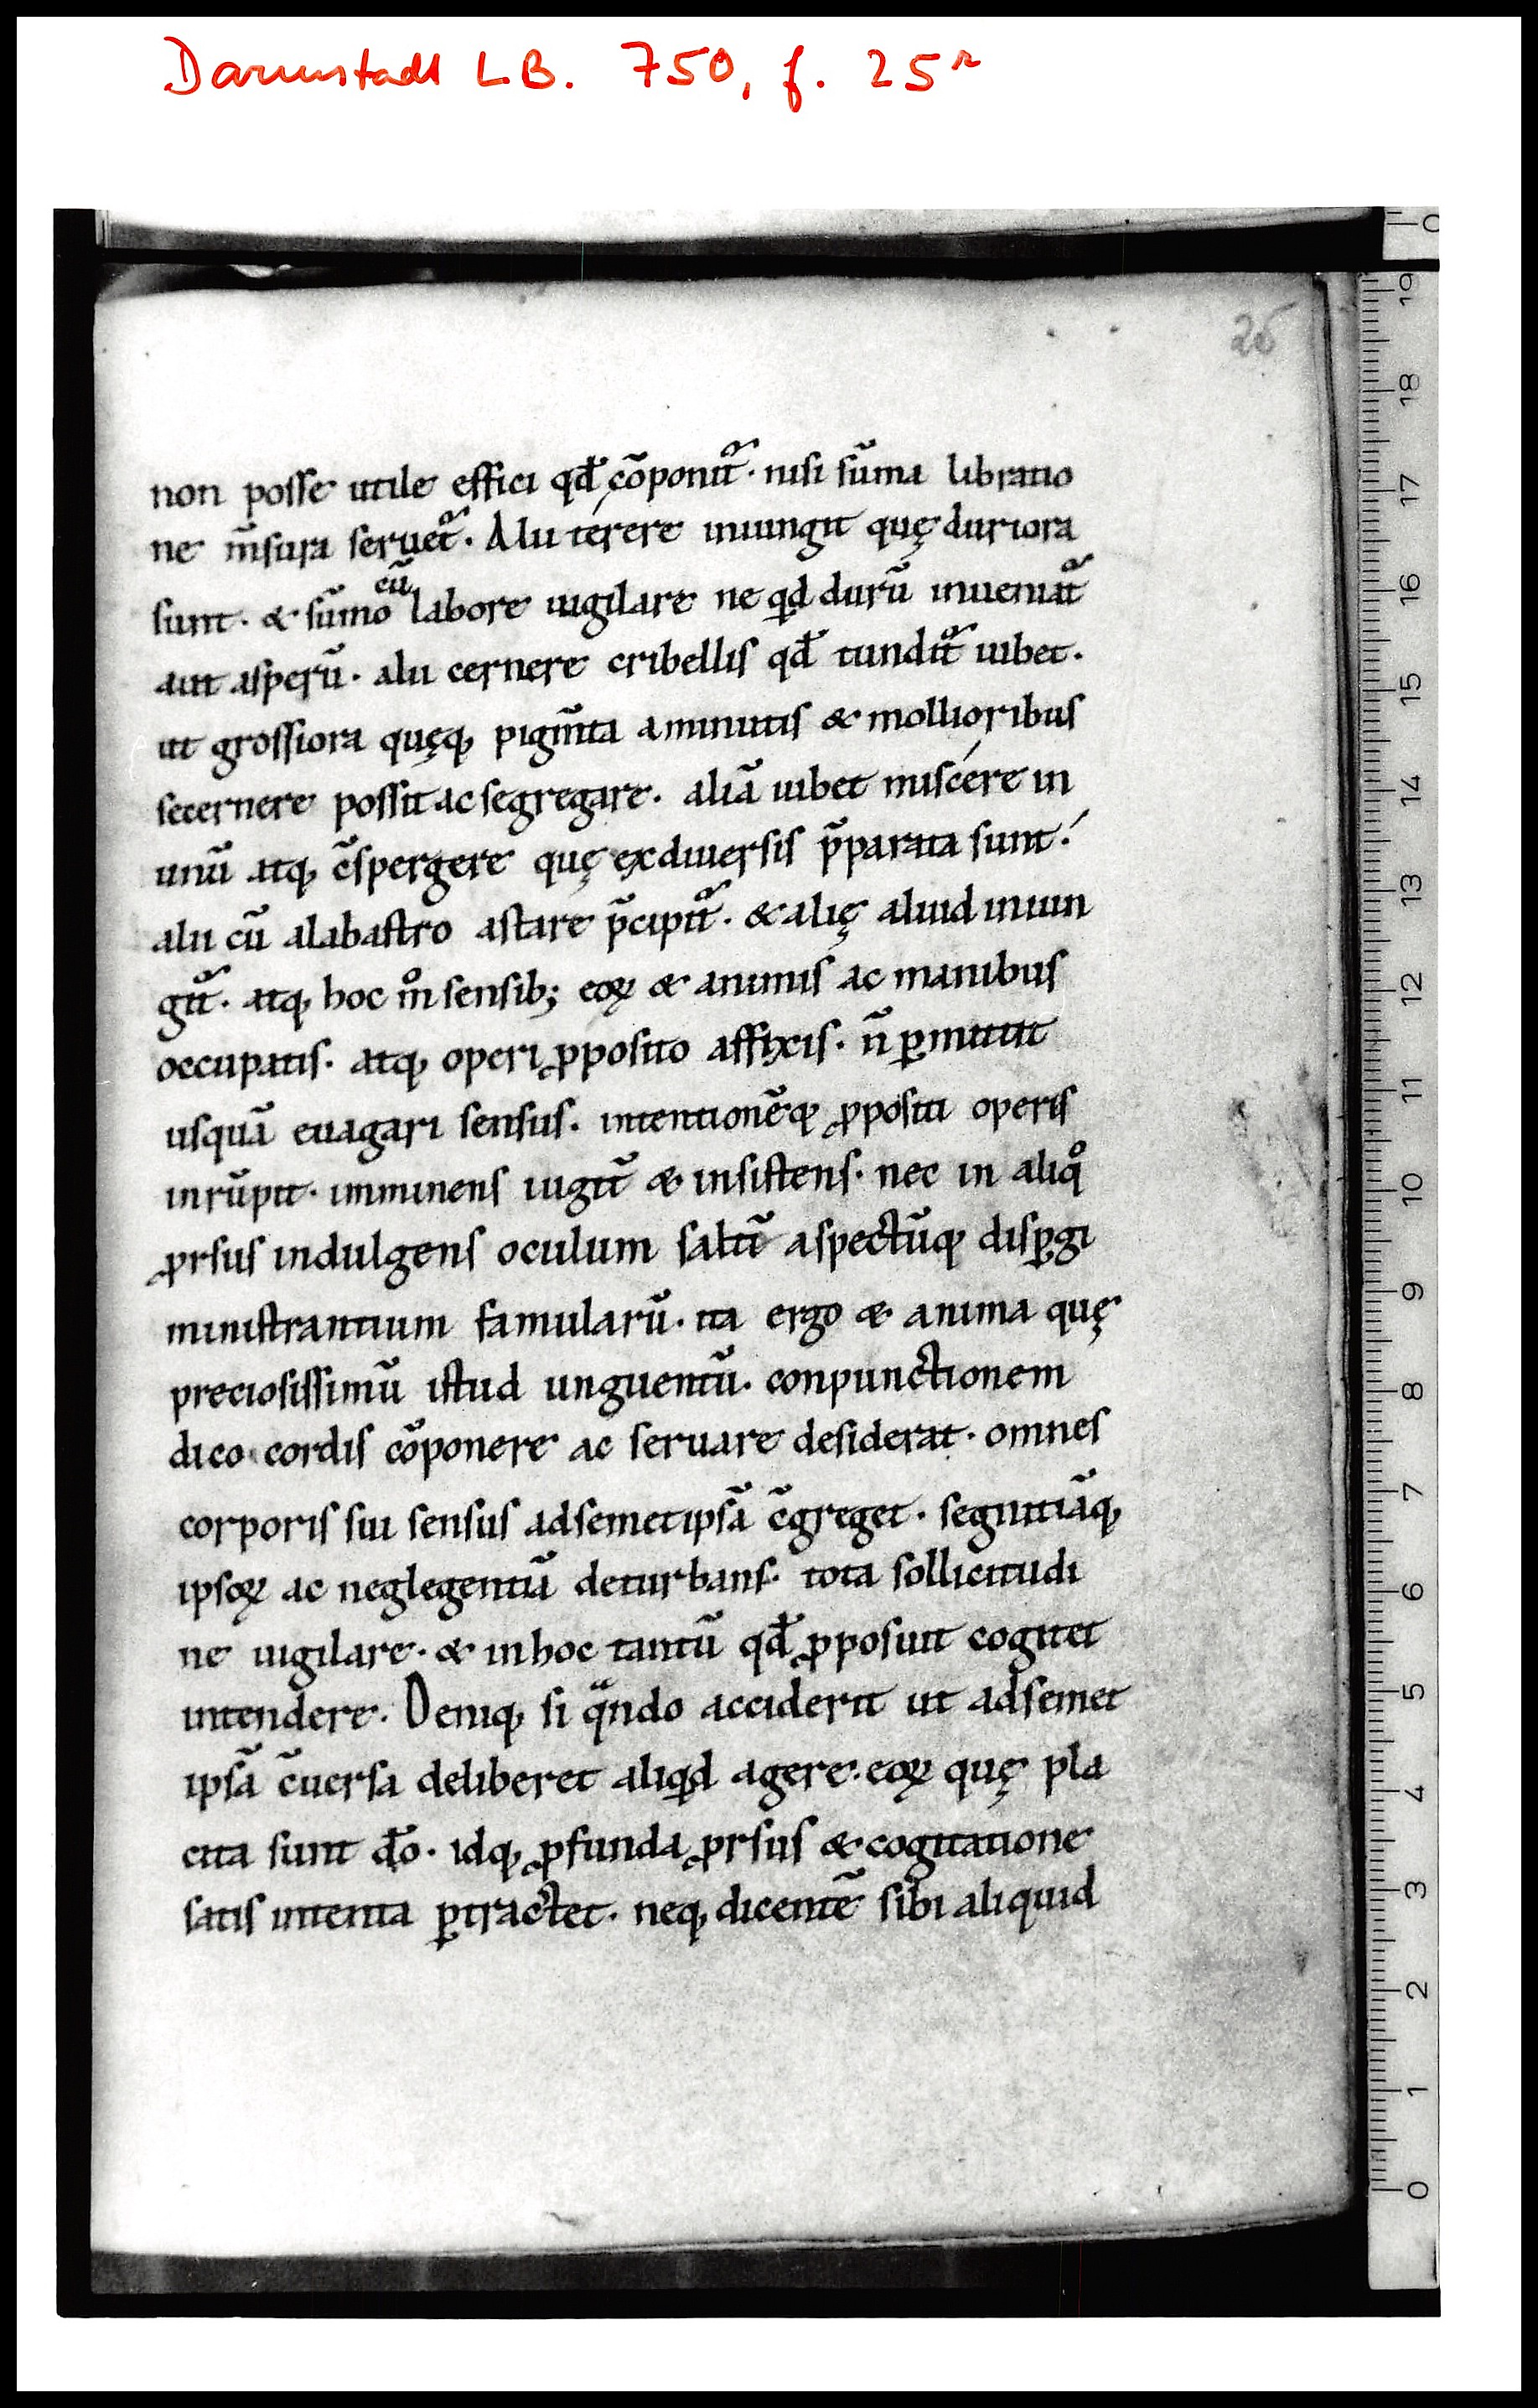 Darmstadt L.B. 750, f. 25r
25
non posse utile effici qđ cōponit᷑. nisi sūma libratio
ne m̄sura seruet᷑. Alii térere iniungit quę duriora
sunt. & sūmo cū labore uigilare ne qͥd durū inueniat᷑
aut asperū. alii cernere cribellis qđ tundit᷑ iubet.
ut grossiora quęq; pigm̄ta a minutis & mollioribus
secernere possit ac segregare. aliā iubet miscére in
unū atq; c̄spergere quę ex diuersis p̄parata sunt.
alii cū alabastro astare p̄cipit᷑. & alię aliud iniun
git᷑. atq; hoc m̊ sensib; eoꝝ & animis ac manibus
occupatis. atq; operi ꝓposito affixis. n̄ ꝑmittit
usquā euagari sensus. intentionēq; ꝓpositi operis
inrūpit. imminens iugit̄ & insistens. nec in aliq̊
ꝓrsus indulgens oculum saltī aspectūq; disꝑgi
ministrantium famularū. ita ergo & anima quę
preciosissimū istud unguentū. conpunctionem
dico cordis cōponere ac seruare desiderat. omnes
corporis sui sensus ad semetipsā c̄greget. segnitiāq;
ipsoꝝ ac neglegentiā deturbans. tota sollicitudi
ne uigilare. & in hoc tantū qđ ꝓposuit cogitet
intendere. Deniq; si qͣndo acciderit ut ad semet
ipsā c̄uersa deliberet aliqͥd agere. eoꝝ quę pla
cita sunt đo. idq; ꝓfunda ꝓrsus & cogitatione
satis intenta ꝑtractet. neq; dicentē sibi aliquid
0
19
18
17
16
15
14
13
12
11
10
9
8
7
6
5
4
3
2
1
0